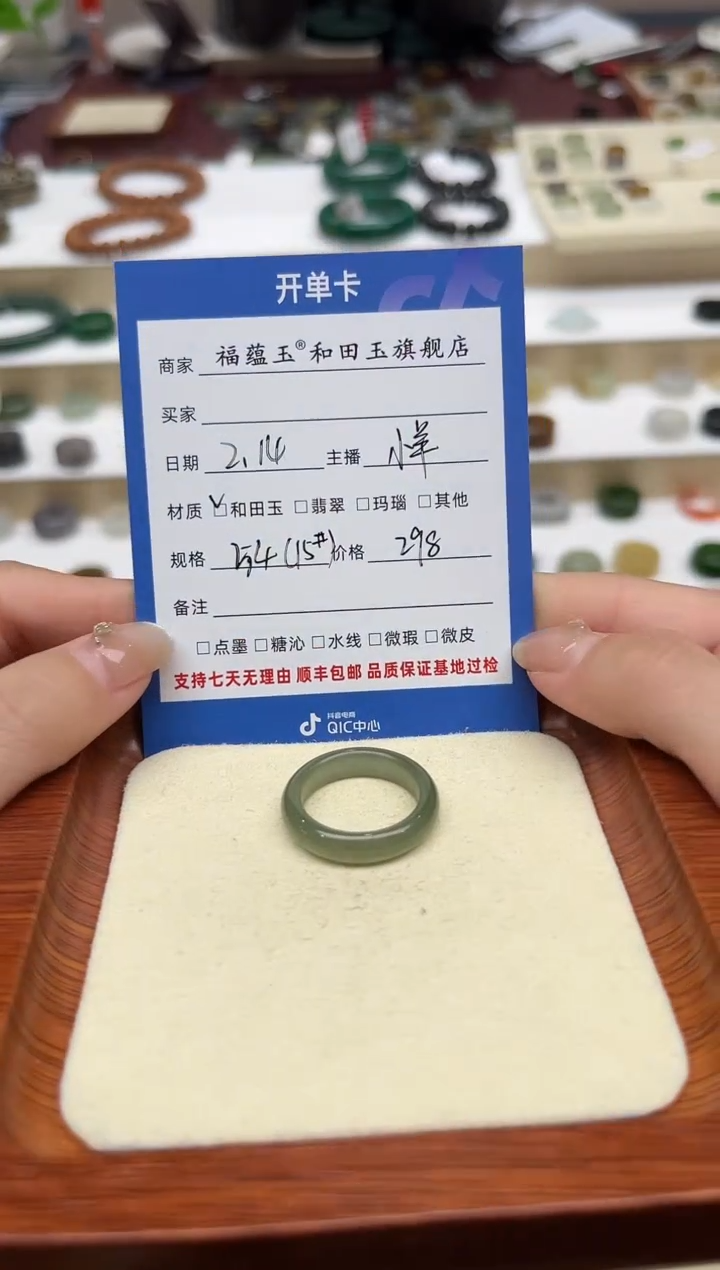 开单卡
商家 福蕴玉®和田玉旗舰店
买家
日期 2.14 主播 小羊
材质 ☑和田玉 □翡翠 □玛瑙 □其他
规格 (15#) 价格 298
备注
□点墨 □糖沁 □水线 □微瑕 □微皮
支持七天无理由 顺丰包邮 品质保证基地过检
抖音电商
QIC中心